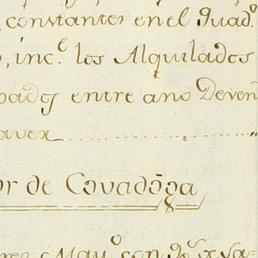 , constantes en el Quad.º
, inc.s los Alquilados
pados entre año Deven
aver
or de Covadõga
Mau.º con